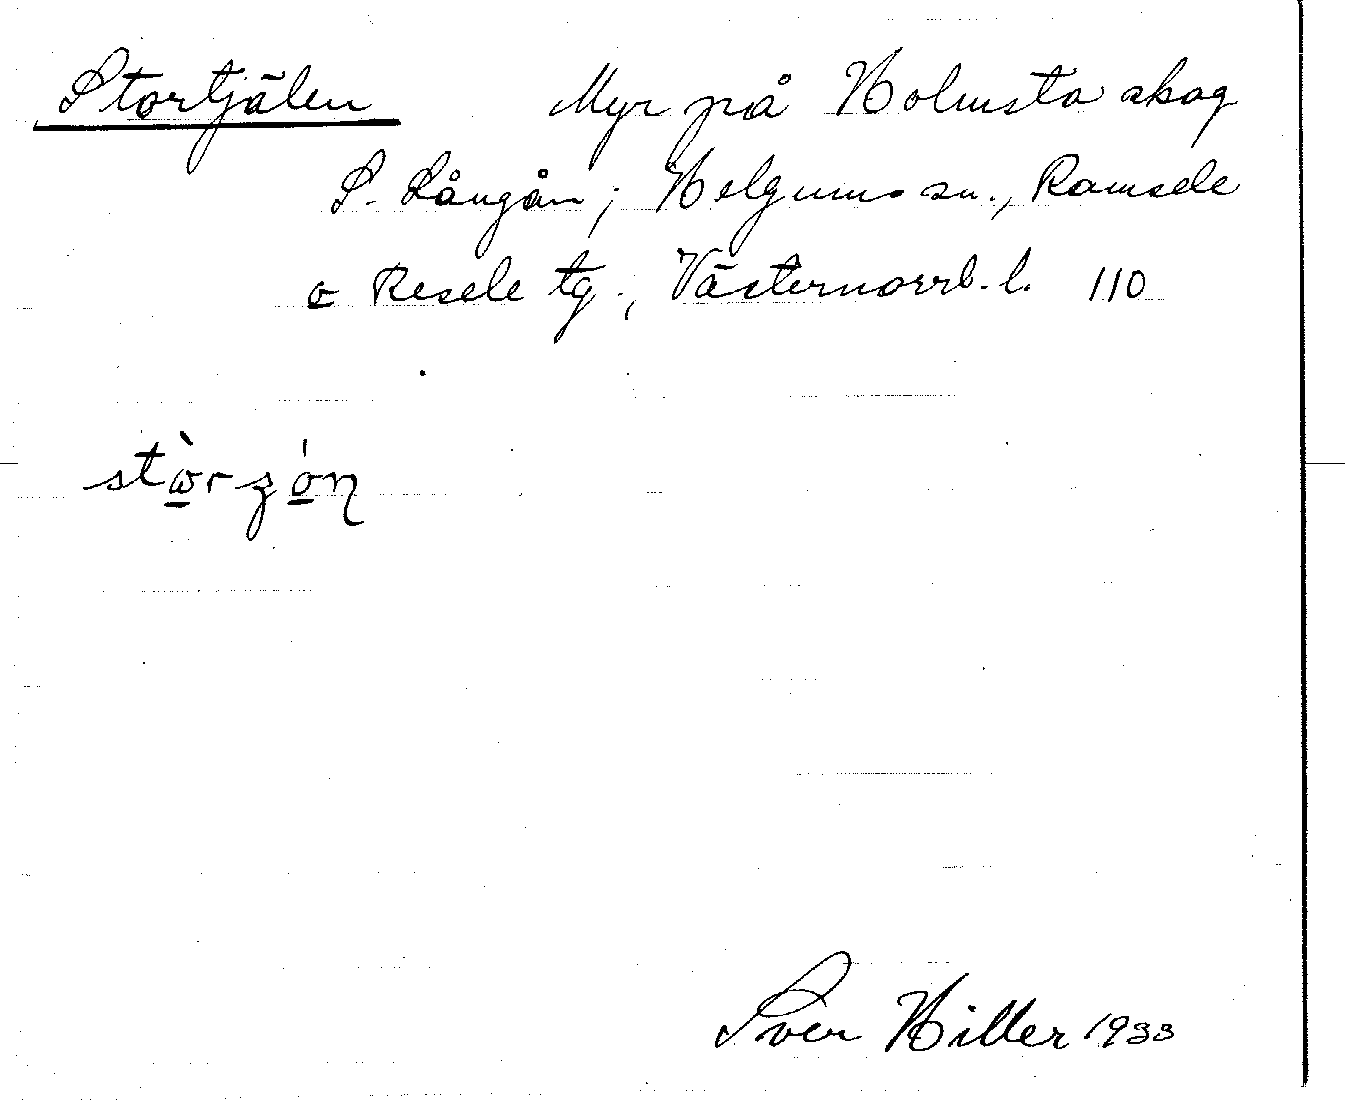 Stortjälen Myr på Holmsta skog
S. Långån; Helgums sn., Ramsele
o Resele tg., Västernorrl. l. 110
Sven Hiller 1933